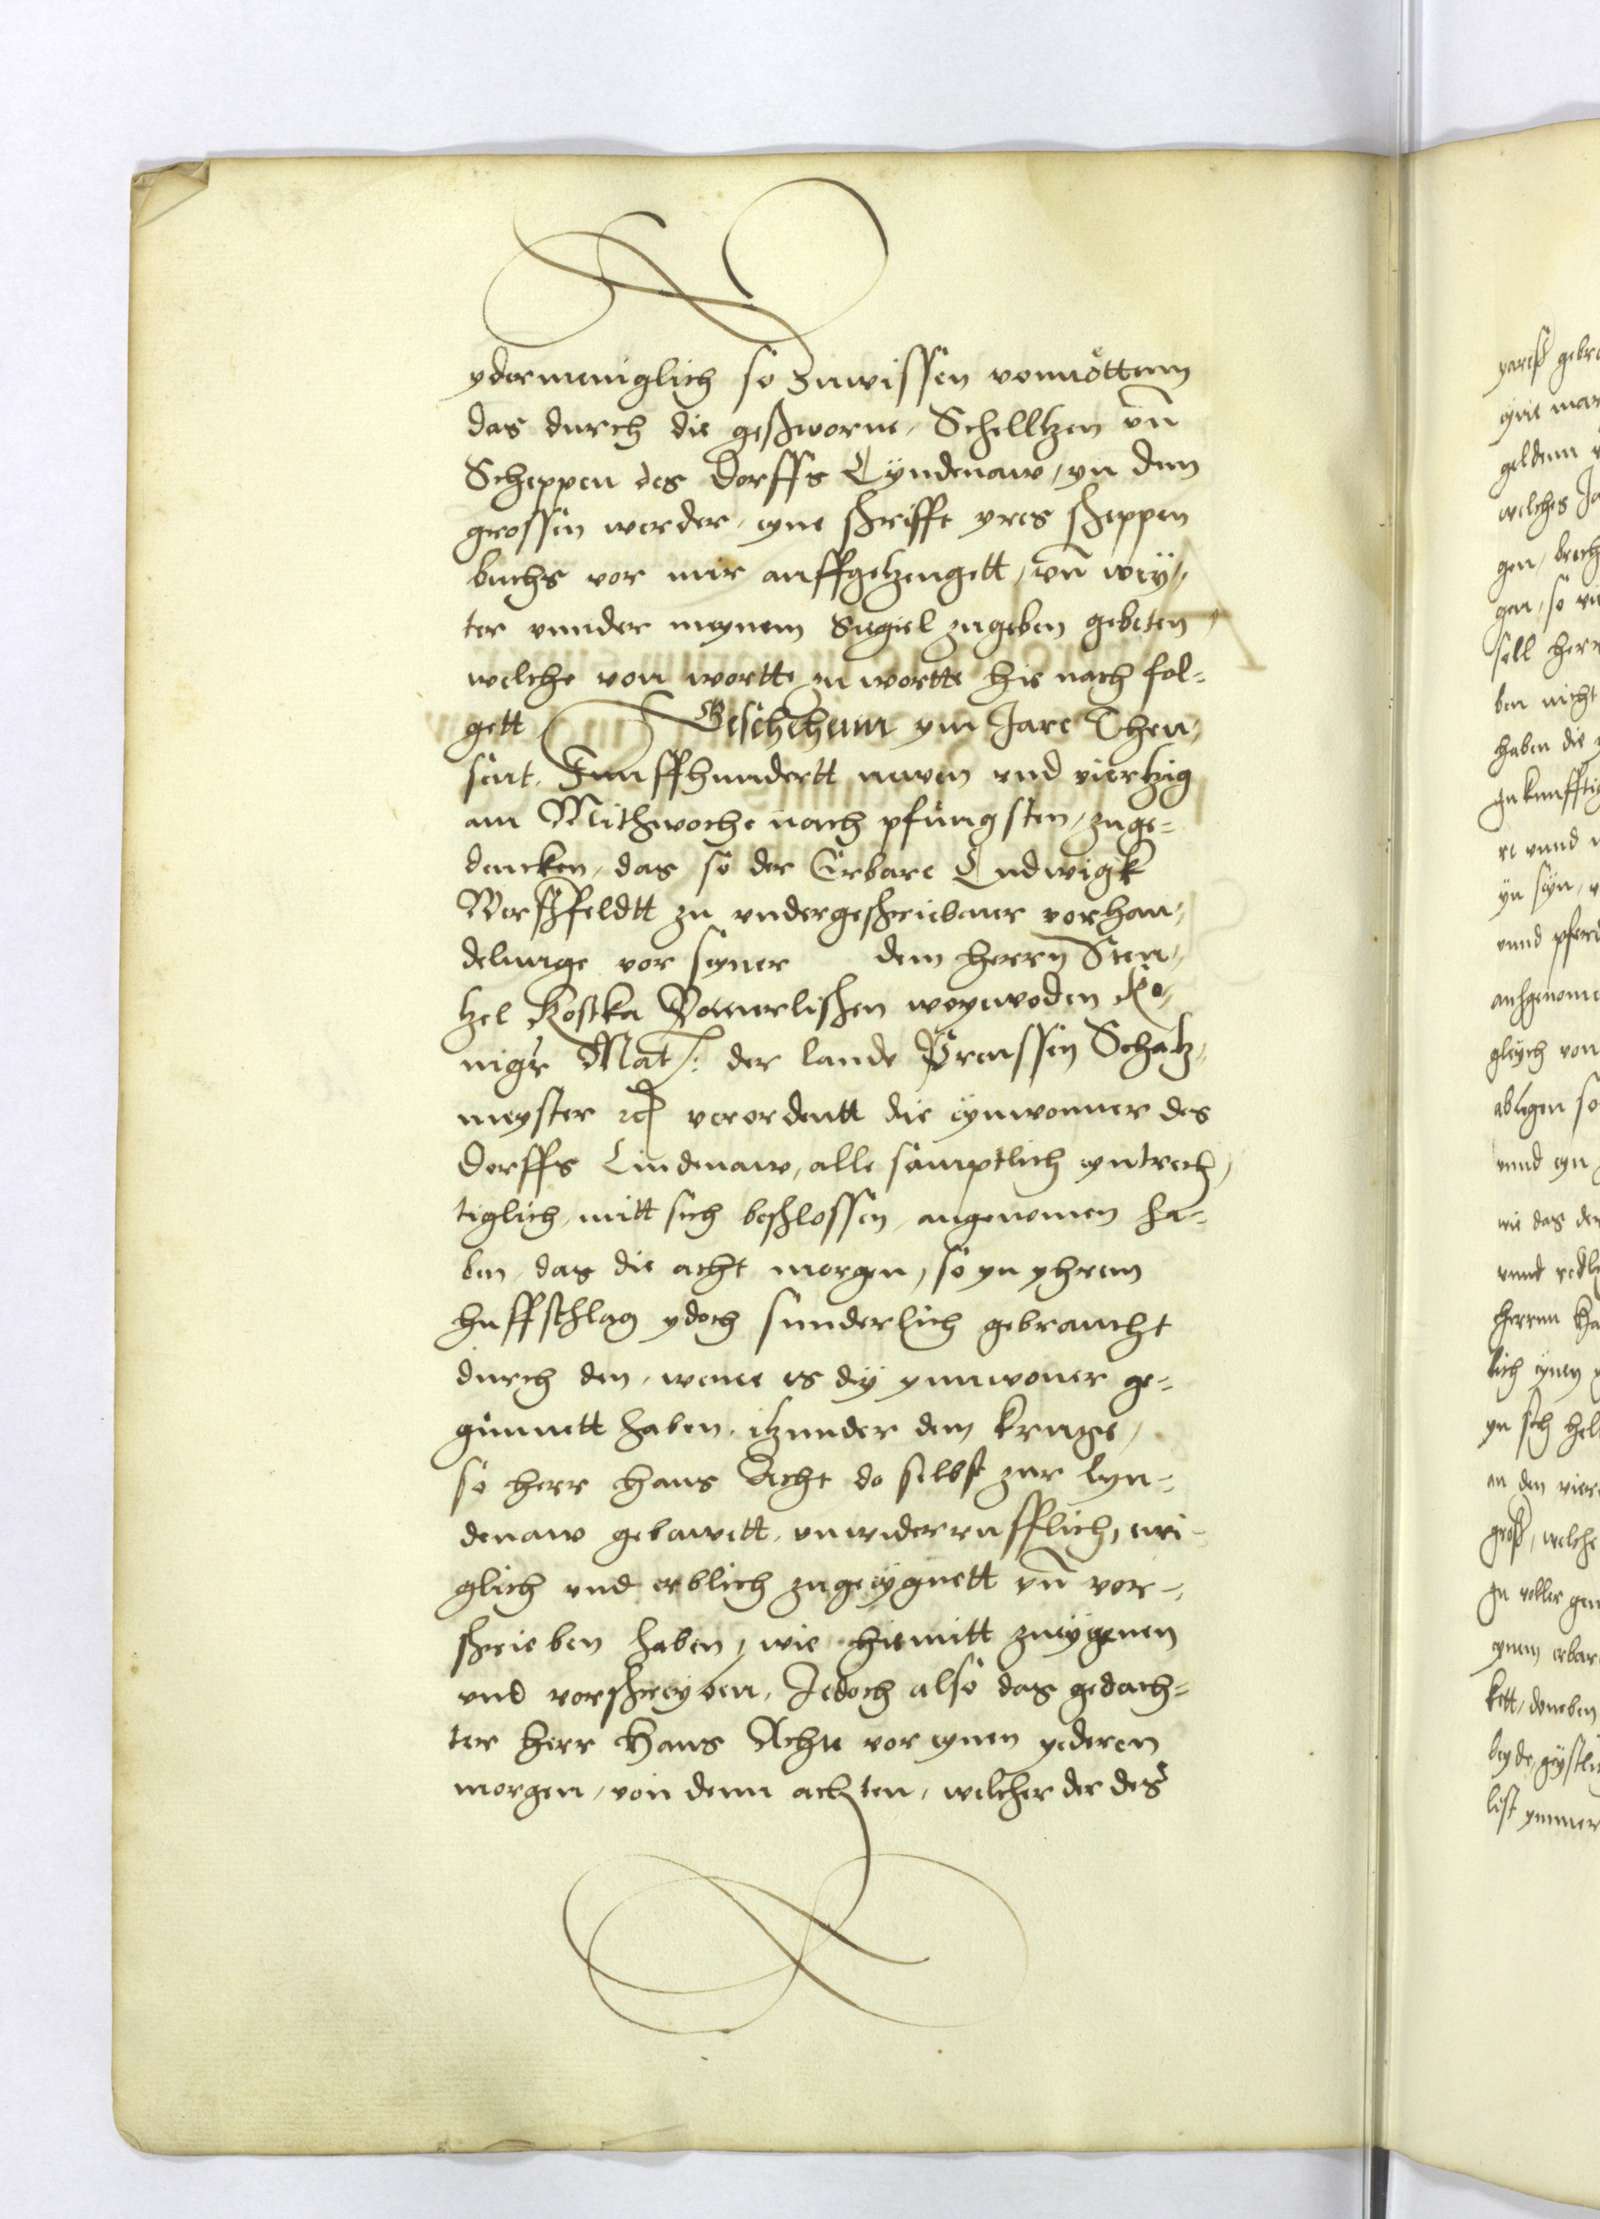 ydermeniglich so zuwissen vonnöttenn
das durch die geschworne, Schelltzen vn̄
Scheppen des Dorffs Lÿndenaw, yn dem
grossen werder, eyne schrifft yres scheppen
buchs vor mir auffgetzengett, vn̄ wey-
ter vnnder meynem Siegiel zugeben gebeten,
welche von wortte zu wortte hie nach fol-
gett Geschehenn ym Jare Thau-
sent Funffhundertt newen vnd viertzig
am Mithwoche nach pfingsten, zuge-
dencken, das so der Erbare Ludwigk
Werssfeldtt zu vndergeschriebener vorhan-
delunge vor seyner dem herrn Sten-
tzel Kostka Pomerlischen woywoden Ko-
nigr Mat: der lande Preussen Schatz-
meyster ꝛc verordentt die eynwonner des
Dorffs Lindenaw, alle samptlich eyntrech-
tiglich, mitt sich beschlossen, angenomen ha-
ben, das die acht morgen, so yn yhrem
huffschlag ydoch sunderlich gebraucht
durch den, weme es dy ynnwoner ge-
gunnett haben, itzunder dem kruge,
so herr Hans Acht do selbst zur Lyn-
denaw gebawett, vnwiderrufflich, ewi-
glich vnd erblich zugeeygnett vn̄ vor-
schrieben haben, wie hiemitt zueygenen
vnd vorschreyben, Jedoch also das gedach-
ter Herr Hans Achte vor eynen yederen
morgen, von denn achten, welcher der des
yaresz gebra
eyne mar
geldenn
welches Ja
gen, brech
gen, so vi
soll herr
ben nicht
haben die
zukunfftig
re vnnd
yn seyn, v
vnnd pferd
auszgenome
gleych von
ablegen so
vnnd eyn
wie das der
vnnd redl
herren Ha
lich eynen
yn sch hel
an den vier
grosz, welche
zu voller gen
eynem erbar
kett, doneben
beyde, geystli
list ymmer